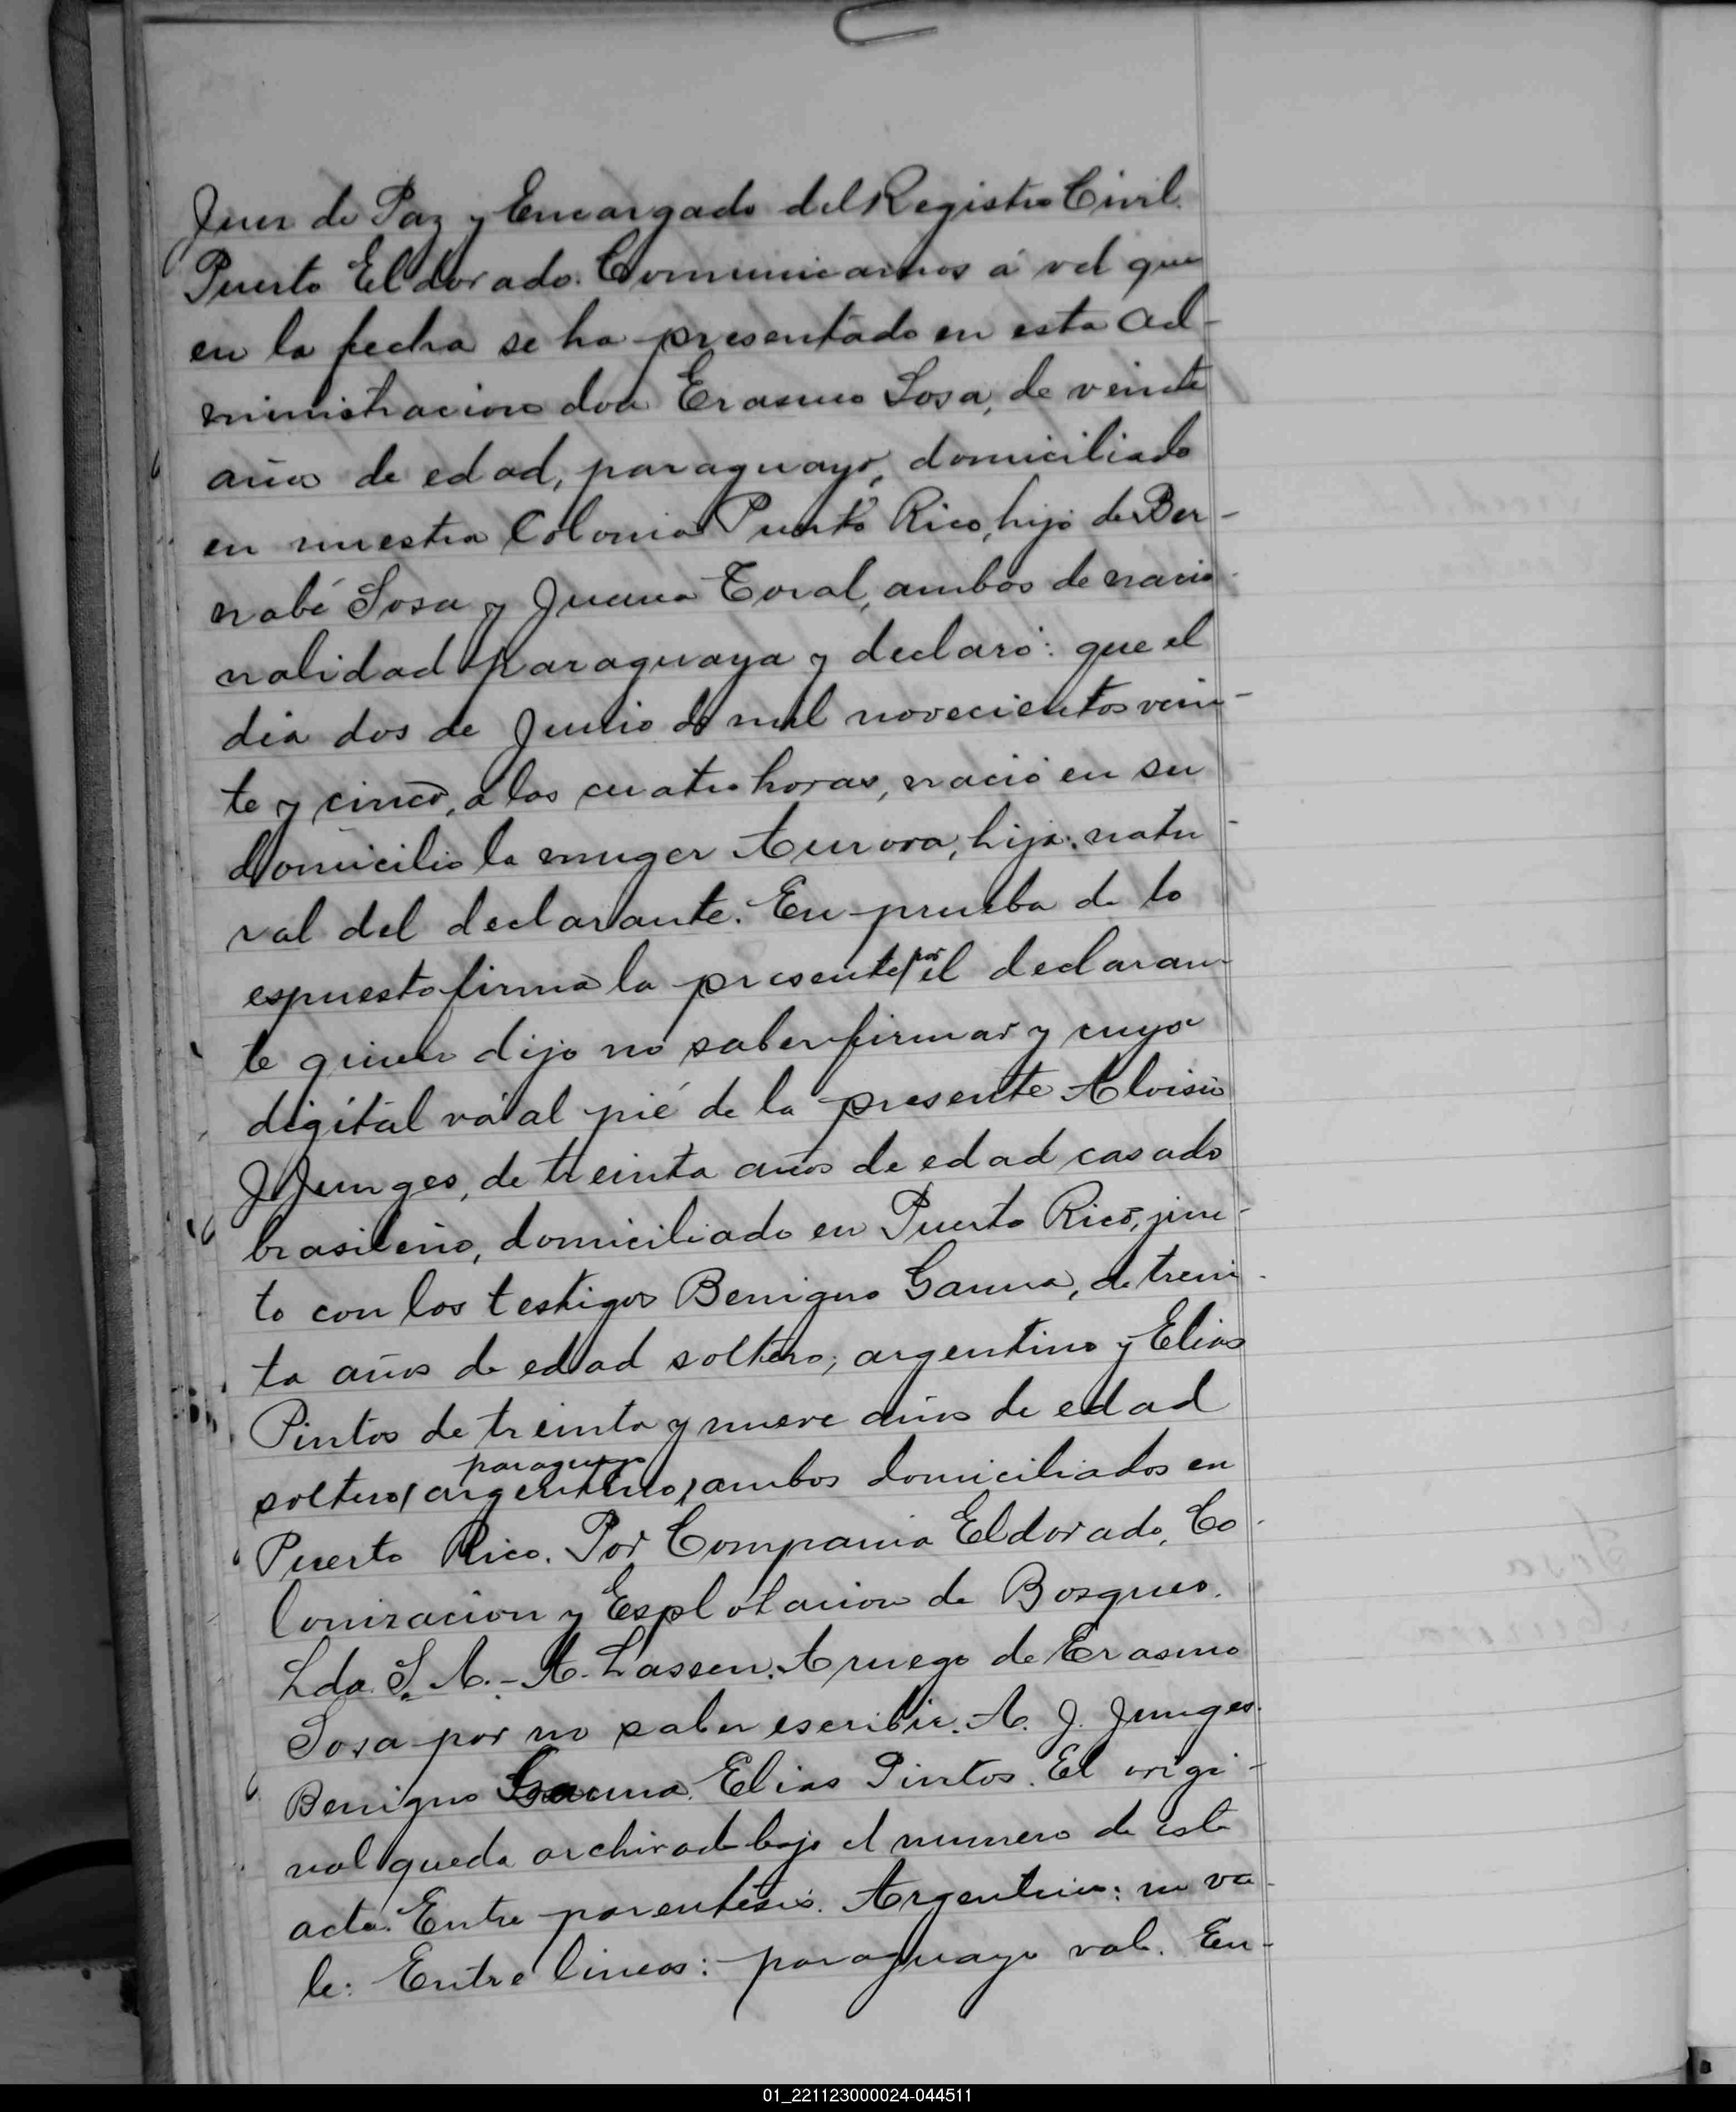 Juez de Paz y Encargado del Registro Civil.
Puerto Eldorado. Comunicamos á vd que
en la fecha se ha presentado en esta Ad-
ministracion don Erasmo Sosa, de veinte
años de edad, paraguayo, domiciliado
en nuestra Colonia Puerto Rico, hijo de Ber-
nabé Sosa y Juana Toral, ambos de nacio-
nalidad paraguaya y declaró: que el
dia dos de Junio de mil novecientos vein-
te y cinco, á las cuatro horas, nació en su
domicilio la muger Aurora, hija natu-
ral del declarante. En prueba de lo
espuesto firma la presente por el declaran-
te quien dijo no saber firmar y cuya
digital vá al pié de la presente Aloisio
J. Junges, de treinta años de edad casado
brasileño, domiciliado en Puerto Rico, jun-
to con los testigos Benigno Gauna, de trein-
ta años de edad soltero, argentino y Elias
Pintos de treinta y nueve años de edad
paraguayo
soltero (argentino) ambos domiciliados en
Puerto Rico. Por Compania Eldorado, Co-
lonizacion y Esplotacion de Bosques.
Lda. S. A. - A. Lassen. A ruego de Erasmo
Sosa por no saber escribir. A. J. Junges.
Benigno Gauna. Elias Pintos. El origi-
nal queda archivado bajo el numero de esta
acta. Entre parentesis. Argentino: no va-
le: Entre lineas: paraguayo vale. En-
01_221123000024-044511